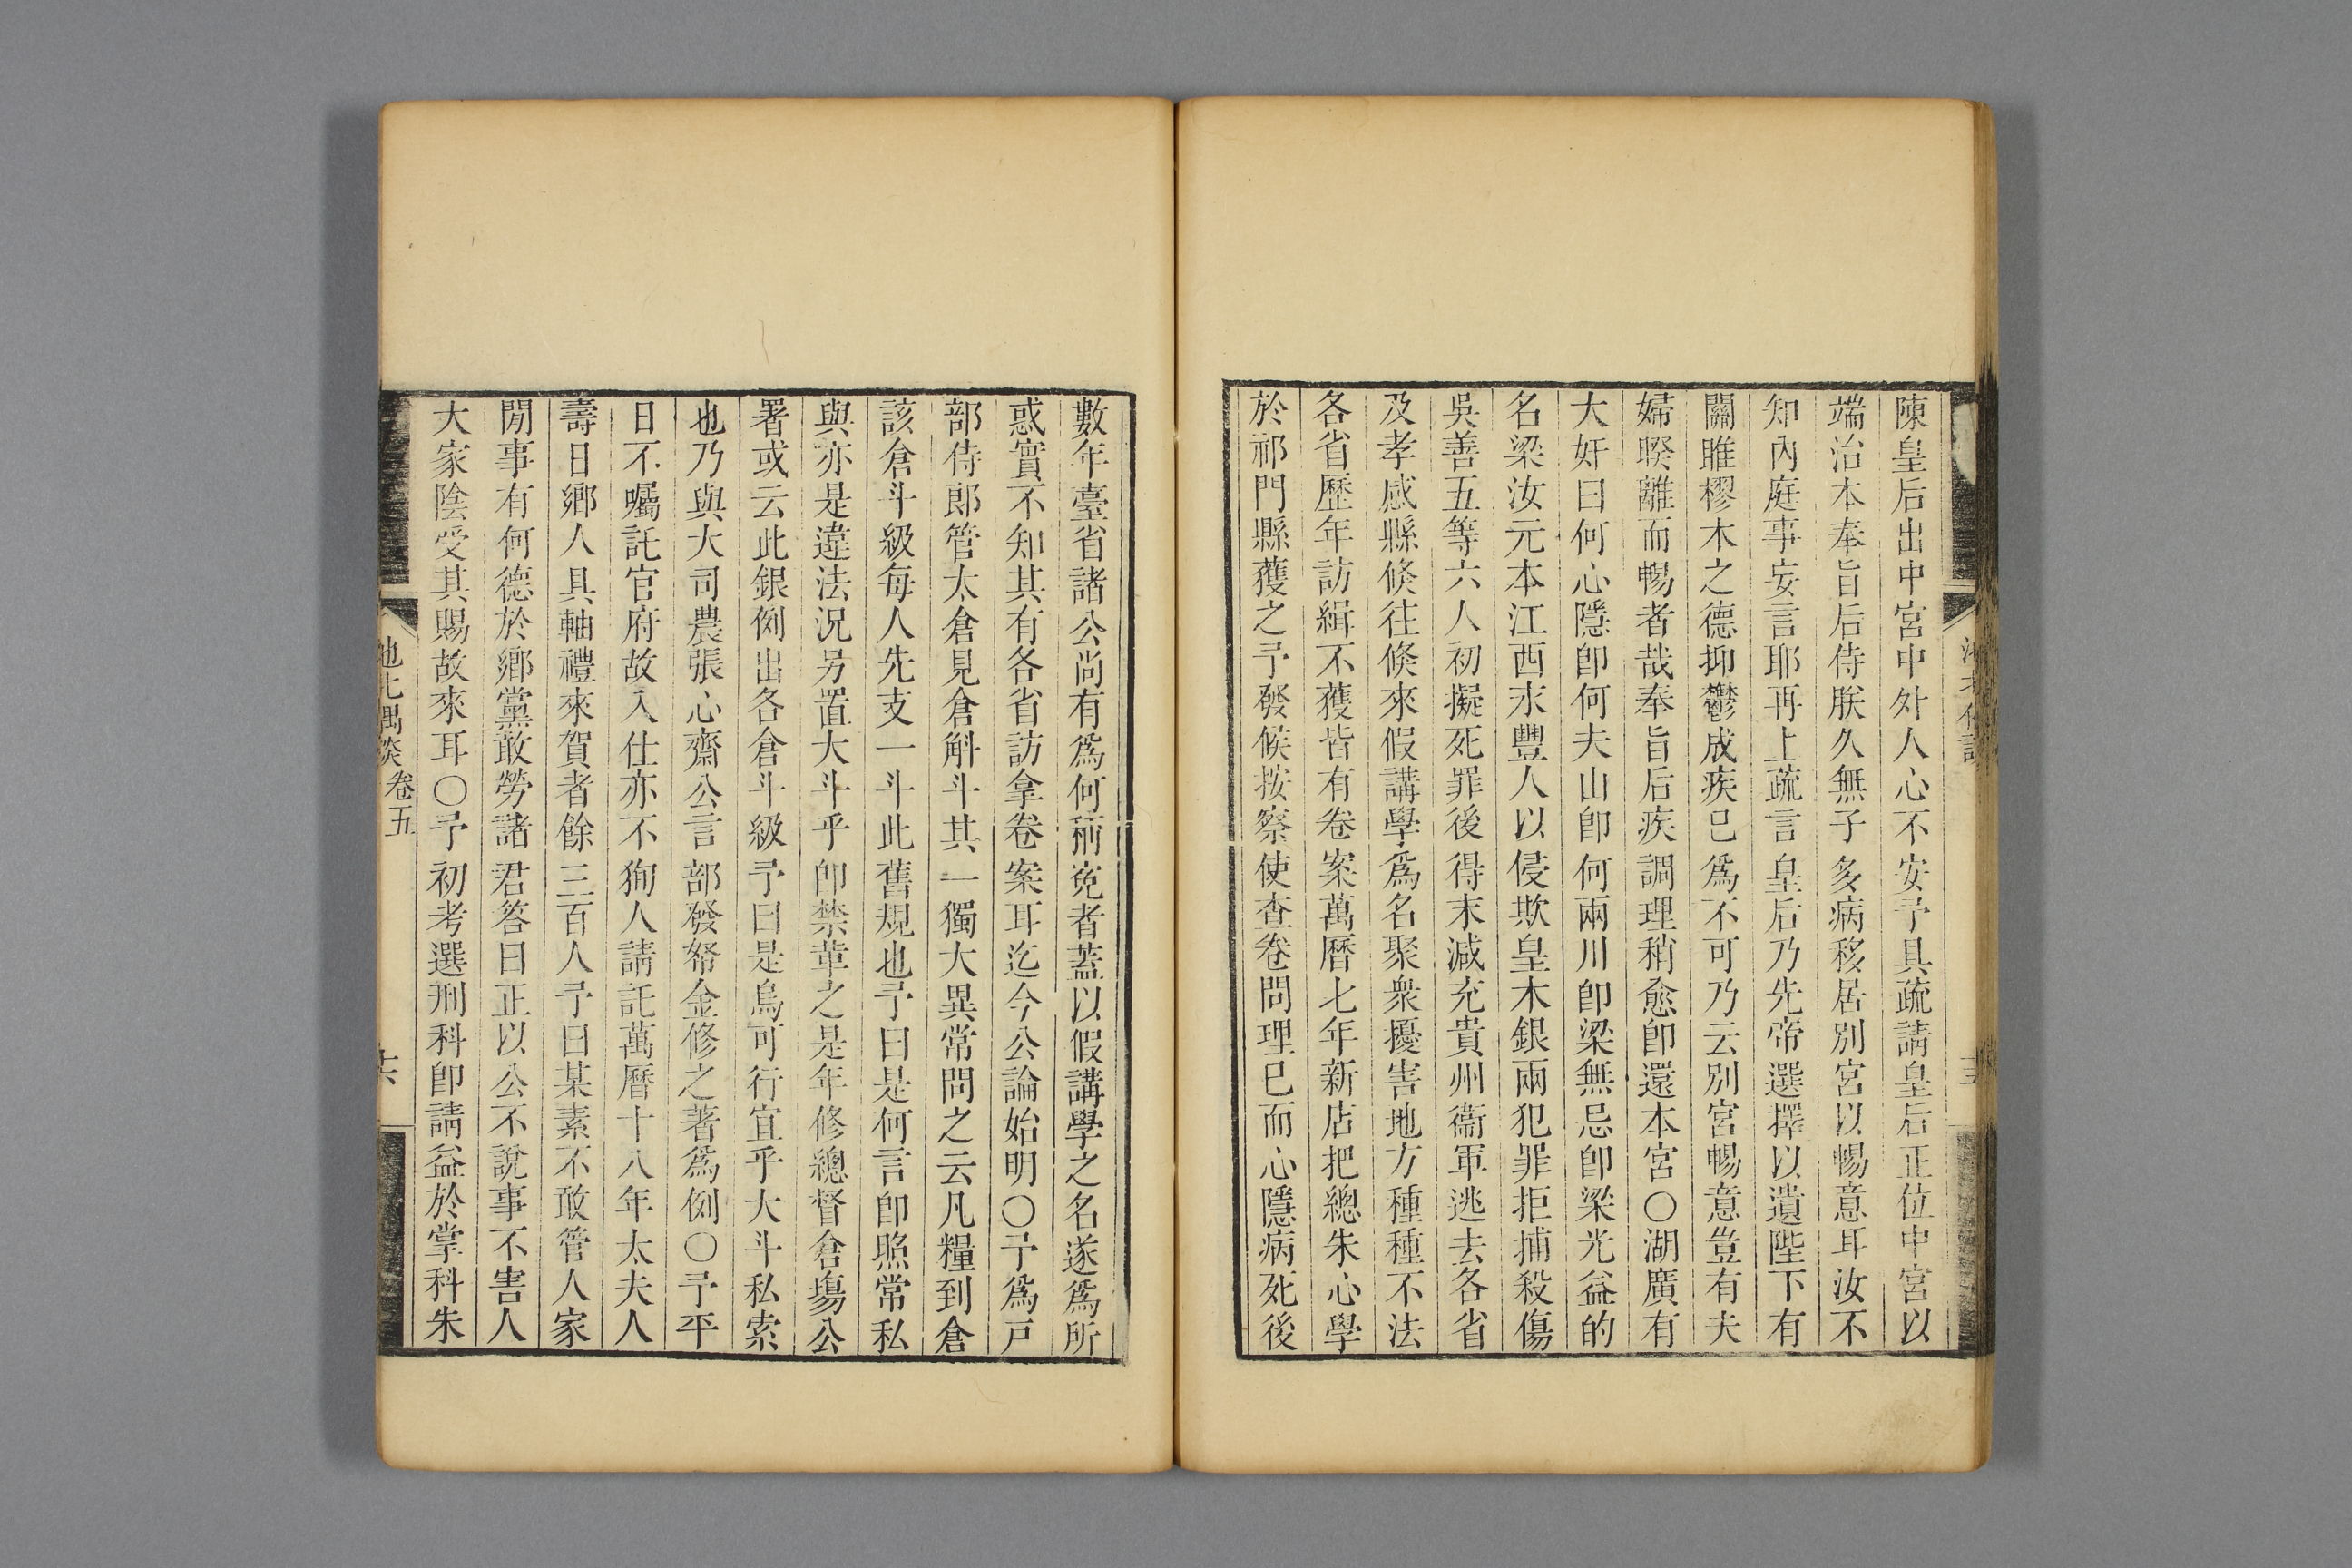 陳皇后出中宮中外人心不安予具疏請皇后正位中宮以
端治本奉旨后侍朕久無子多病移居別宮以暢意耳汝不
知內庭事妄言耶再上疏言皇后乃先帝選擇以遺陛下有
關雎樛木之德抑鬱成疾已爲不可乃云別宮暢意豈有夫
婦暌離而暢者哉奉旨后疾調理稍愈卽還本宮〇湖廣有
大奸曰何心隱卽何夫山卽何兩川卽梁無忌卽梁光益的
名梁汝元本江西永豐人以侵欺皇木銀兩犯罪拒捕殺傷
吳善五等六人初擬死罪後得末減充貴州衞軍逃去各省
及孝感縣倏往倏來假講學爲名聚衆擾害地方種種不法
各省歷年訪緝不獲皆有卷案萬曆七年新店把總朱心學
於祁門縣獲之予發候按察使查卷問理已而心隱病死後
數年臺省諸公尚有爲何稱寃者蓋以假講學之名遂爲所
惑實不知其有各省訪拿卷案耳迄今公論始明〇予爲戸
部侍郎管太倉見倉斛斗其一獨大異常問之云凡糧到倉
該倉斗級每人先支一斗此舊規也予曰是何言卽照常私
與亦是違法況另置大斗乎卽禁革之是年修總督倉場公
署或云此銀例出各倉斗級予曰是烏可行宜乎大斗私索
也乃與大司農張心齋公言部發帑金修之著爲例〇予平
日不囑託官府故入仕亦不狥人請託萬曆十八年太夫人
壽日鄉人具軸禮來賀者餘三百人予曰某素不敢管人家
閒事有何德於鄉黨敢勞諸君答曰正以公不說事不害人
大家陰受其賜故來耳〇予初考選刑科卽請益於掌科朱
池北偶談 卷五 十六